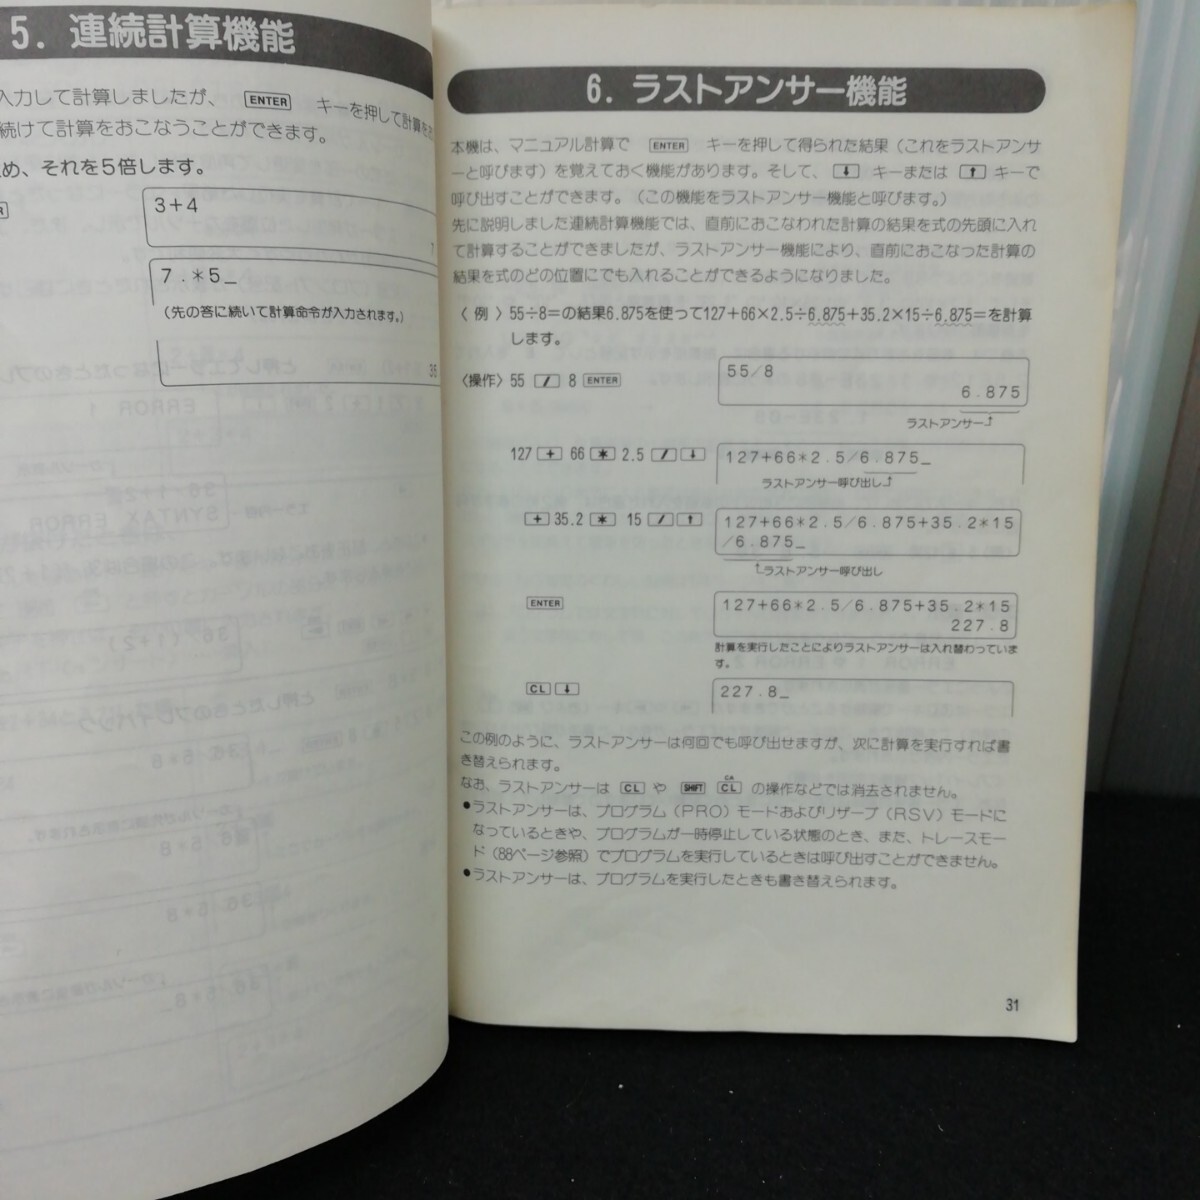 5. 連続計算機能
入力して計算しましたが、 ENTER キーを押して計算を
続けて計算をおこなうことができます。
め、それを5倍します。
3+4
7.*5_
(先の答に続いて計算命令が入力されます。)
35
6. ラストアンサー機能
本機は、マニュアル計算で ENTER キーを押して得られた結果(これをラストアンサ
ーと呼びます)を覚えておく機能があります。そして、 ↓ キーまたは ↑ キーで
呼び出すことができます。(この機能をラストアンサー機能と呼びます。)
先に説明しました連続計算機能では、直前におこなわれた計算の結果を式の先頭に入れ
て計算することができましたが、ラストアンサー機能により、直前におこなった計算の
結果を式のどの位置にでも入れることができるようになりました。
〈例〉55÷8=の結果6.875を使って127+66×2.5÷6.875+35.2×15÷6.875=を計算
します。
〈操作〉55 / 8 ENTER
55/8
6.875
ラストアンサー
127 + 66 * 2.5 / ↓
127+66*2.5/6.875_
ラストアンサー呼び出し
+ 35.2 * 15 / ↑
127+66*2.5/6.875+35.2*15
/6.875_
ラストアンサー呼び出し
ENTER
127+66*2.5/6.875+35.2*15
227.8
計算を実行したことによりラストアンサーは入れ替わっていま
す。
CL ↓
227.8_
この例のように、ラストアンサーは何回でも呼び出せますが、次に計算を実行すれば書
き替えられます。
なお、ラストアンサーは CL や SHIFT CA CL の操作などでは消去されません。
●ラストアンサーは、プログラム(PRO)モードおよびリザーブ(RSV)モードに
なっているときや、プログラムが一時停止している状態のとき、また、トレースモー
ド(88ページ参照)でプログラムを実行しているときは呼び出すことができません。
●ラストアンサーは、プログラムを実行したときも書き替えられます。
31